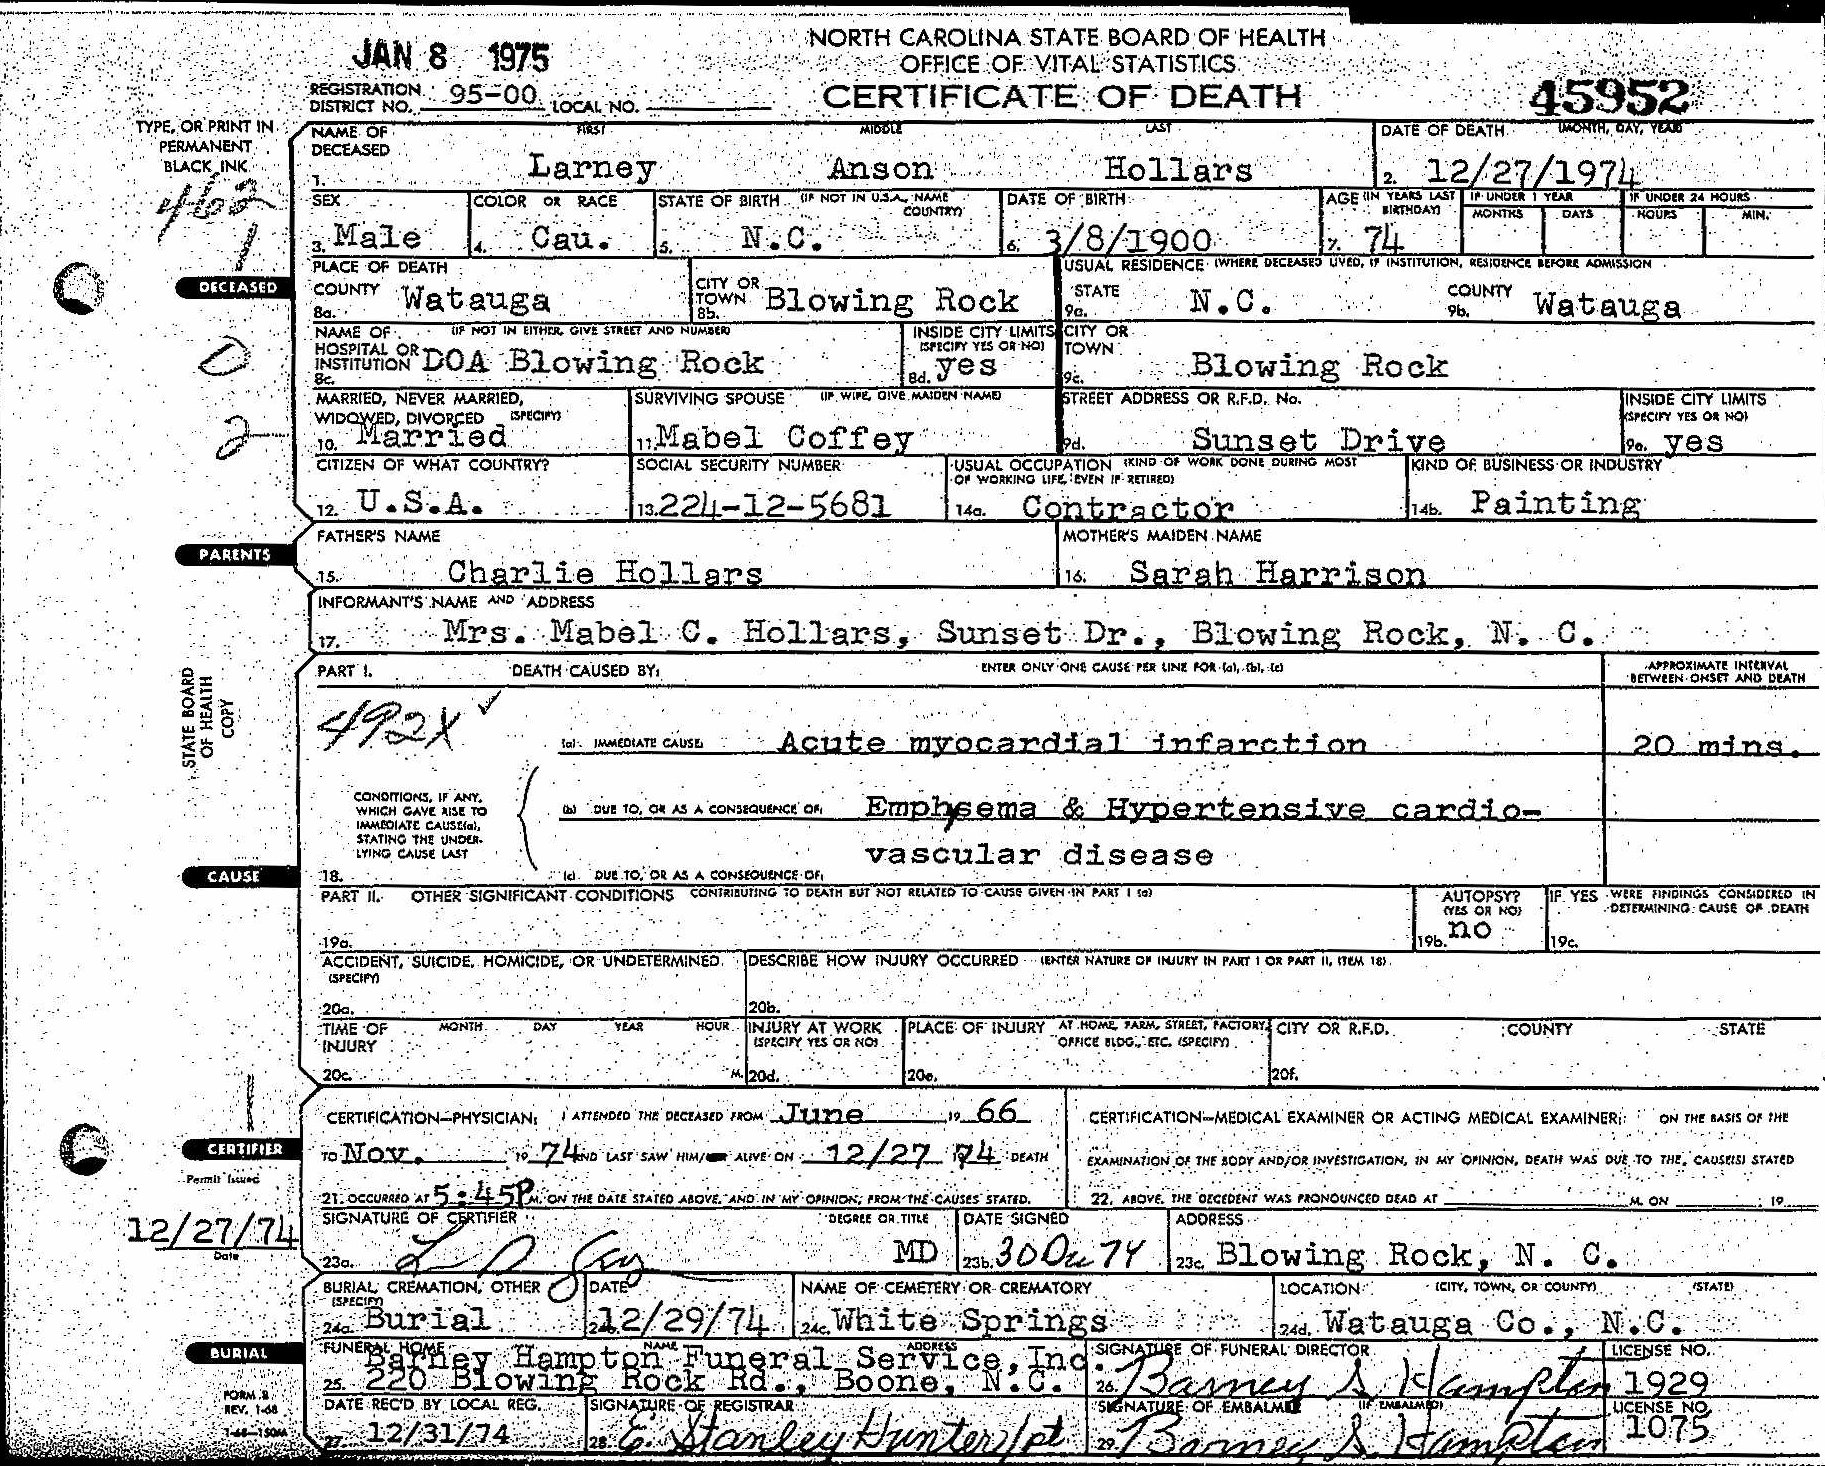 JAN 8 1975
NORTH CAROLINA STATE BOARD OF HEALTH
OFFICE OF VITAL STATISTICS
REGISTRATION DISTRICT NO. 95-00 LOCAL NO.
CERTIFICATE OF DEATH
45952
TYPE, OR PRINT IN
PERMANENT
BLACK INK
462
1
NAME OF DECEASED FIRST MIDDLE LAST
1. Larney Anson Hollars
DATE OF DEATH (MONTH, DAY, YEAR)
2. 12/27/1974
SEX
3. Male
COLOR OR RACE
4. Cau.
STATE OF BIRTH (IF NOT IN U.S.A., NAME COUNTRY)
5. N.C.
DATE OF BIRTH
6. 3/8/1900
AGE (IN YEARS LAST BIRTHDAY)
7. 74
IF UNDER 1 YEAR
MONTHS DAYS
IF UNDER 24 HOURS
HOURS MIN.
DECEASED
PLACE OF DEATH
COUNTY Watauga
8a.
CITY OR TOWN Blowing Rock
8b.
USUAL RESIDENCE (WHERE DECEASED LIVED, IF INSTITUTION, RESIDENCE BEFORE ADMISSION
STATE N.C.
9a.
COUNTY Watauga
9b.
0
NAME OF HOSPITAL OR INSTITUTION (IF NOT IN EITHER, GIVE STREET AND NUMBER)
8c. DOA Blowing Rock
INSIDE CITY LIMITS (SPECIFY YES OR NO)
8d. yes
CITY OR TOWN
9c. Blowing Rock
2
MARRIED, NEVER MARRIED, WIDOWED, DIVORCED (SPECIFY)
10. Married
SURVIVING SPOUSE (IF WIFE, GIVE MAIDEN NAME)
11. Mabel Coffey
STREET ADDRESS OR R.F.D. No.
9d. Sunset Drive
INSIDE CITY LIMITS (SPECIFY YES OR NO)
9e. yes
CITIZEN OF WHAT COUNTRY?
12. U.S.A.
SOCIAL SECURITY NUMBER
13. 224-12-5681
USUAL OCCUPATION (KIND OF WORK DONE DURING MOST OF WORKING LIFE, EVEN IF RETIRED)
14a. Contractor
KIND OF BUSINESS OR INDUSTRY
14b. Painting
PARENTS
FATHER'S NAME
15. Charlie Hollars
MOTHER'S MAIDEN NAME
16. Sarah Harrison
INFORMANT'S NAME AND ADDRESS
17. Mrs. Mabel C. Hollars, Sunset Dr., Blowing Rock, N. C.
STATE BOARD
OF HEALTH
COPY
PART I. DEATH CAUSED BY: ENTER ONLY ONE CAUSE PER LINE FOR (a), (b), (c)
APPROXIMATE INTERVAL BETWEEN ONSET AND DEATH
492X ✓
(a) IMMEDIATE CAUSE: Acute myocardial infarction 20 mins.
CONDITIONS, IF ANY,
WHICH GAVE RISE TO
IMMEDIATE CAUSE(a),
STATING THE UNDER-
LYING CAUSE LAST
(b) DUE TO, OR AS A CONSEQUENCE OF: Emphysema & Hypertensive cardio-
vascular disease
CAUSE
18. (c) DUE TO, OR AS A CONSEQUENCE OF:
PART II. OTHER SIGNIFICANT CONDITIONS CONTRIBUTING TO DEATH BUT NOT RELATED TO CAUSE GIVEN IN PART I (a)
19a.
AUTOPSY? (YES OR NO)
19b. no
IF YES WERE FINDINGS CONSIDERED IN DETERMINING CAUSE OF DEATH
19c.
ACCIDENT, SUICIDE, HOMICIDE, OR UNDETERMINED (SPECIFY)
20a.
DESCRIBE HOW INJURY OCCURRED (ENTER NATURE OF INJURY IN PART I OR PART II, ITEM 18)
20b.
TIME OF INJURY MONTH DAY YEAR HOUR
20c. M.
INJURY AT WORK (SPECIFY YES OR NO)
20d.
PLACE OF INJURY AT HOME, FARM, STREET, FACTORY, OFFICE BLDG., ETC. (SPECIFY)
20e.
CITY OR R.F.D. COUNTY STATE
20f.
1
CERTIFIER
CERTIFICATION—PHYSICIAN: I ATTENDED THE DECEASED FROM June 19 66
TO Nov. 19 74 AND LAST SAW HIM/ ALIVE ON 12/27 74 DEATH
21. OCCURRED AT 5:45P M. ON THE DATE STATED ABOVE, AND IN MY OPINION, FROM THE CAUSES STATED.
CERTIFICATION—MEDICAL EXAMINER OR ACTING MEDICAL EXAMINER: ON THE BASIS OF THE
EXAMINATION OF THE BODY AND/OR INVESTIGATION, IN MY OPINION, DEATH WAS DUE TO THE CAUSE(S) STATED
22. ABOVE. THE DECEDENT WAS PRONOUNCED DEAD AT M. ON 19
Permit Issued
12/27/74
Date
SIGNATURE OF CERTIFIER DEGREE OR TITLE
23a. MD
DATE SIGNED
23b. 30 Dec 74
ADDRESS
23c. Blowing Rock, N. C.
BURIAL, CREMATION, OTHER (SPECIFY)
24a. Burial
DATE
24b. 12/29/74
NAME OF CEMETERY OR CREMATORY
24c. White Springs
LOCATION (CITY, TOWN, OR COUNTY) (STATE)
24d. Watauga Co., N.C.
BURIAL
FUNERAL HOME NAME ADDRESS
Barney Hampton Funeral Service, Inc.
25. 220 Blowing Rock Rd., Boone, N.C.
SIGNATURE OF FUNERAL DIRECTOR
26. Barney S Hampton
LICENSE NO.
1929
FORM 8
REV. 1-68
1-68—150M
DATE REC'D BY LOCAL REG.
27. 12/31/74
SIGNATURE OF REGISTRAR
28. E. Stanley Hunter/pt
SIGNATURE OF EMBALMER (IF EMBALMED)
29. Barney S. Hampton
LICENSE NO.
1075